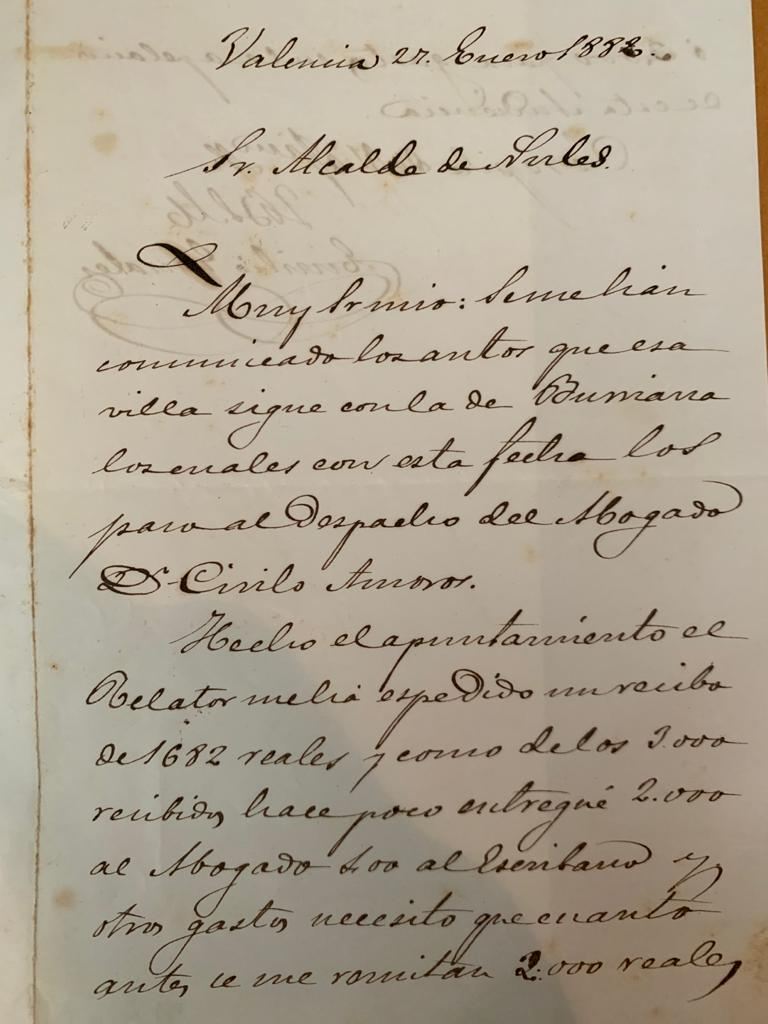 Valencia 27. Enero 1882.
Sr. Alcalde de Nules.
Muy Sr mio: Se me hán
comunicado los autos que esa
villa sigue con la de Burriana
los cuales con esta fecha los
paso al Despacho del Abogado
Dn Cirilo Amoros.
Hecho el apuntamiento el
Relator me há espedido un recibo
de 1682 reales y como de los 3.000
recibidos hace poco entregué 2.000
al Abogado 400 al Escribano y
otros gastos necesito que cuanto
antes se me remitan 2.000 reales